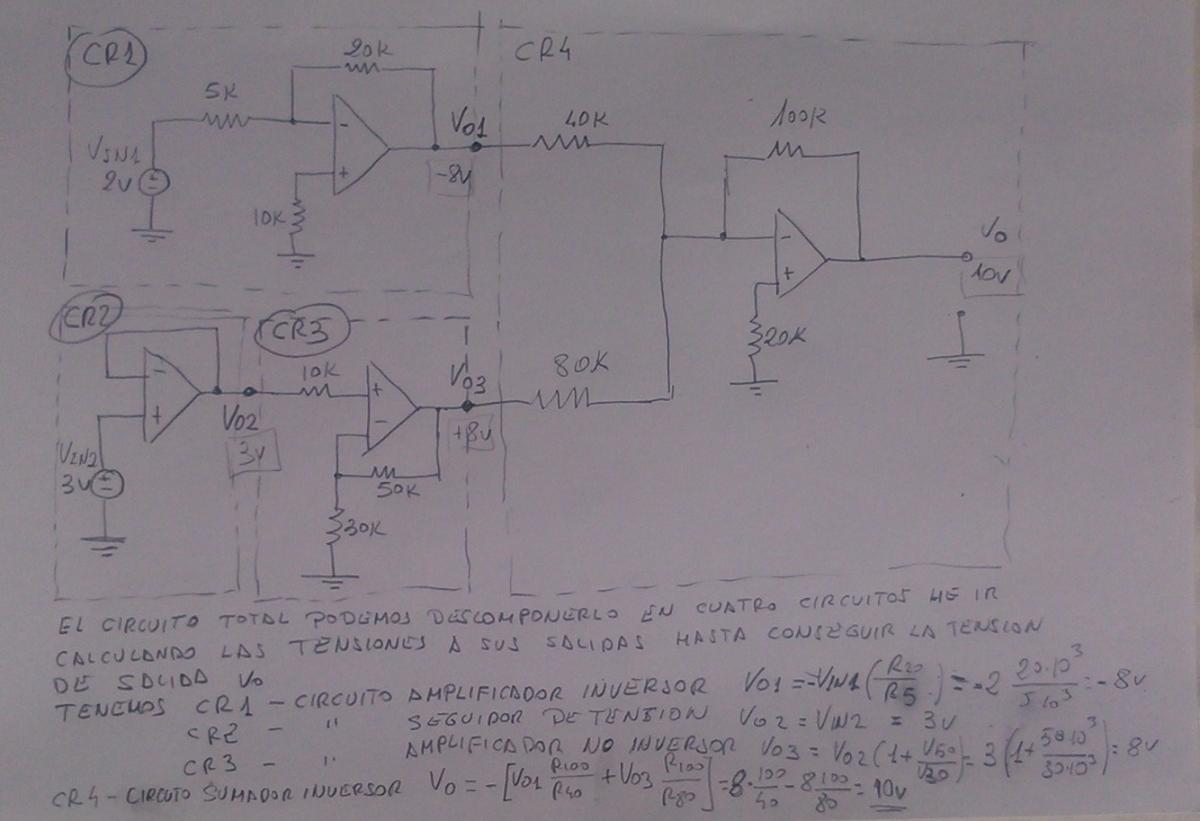 CR1
20K
CR4
5K
VIN1
2V
-
+
10K
VO1
-8V
40K
100K
-
+
20K
VO
10V
CR2
CR3
-
+
VO2
3V
VIN2
3V
10K
+
-
50K
30K
VO3
+8V
80K
EL CIRCUITO TOTAL PODEMOS DESCOMPONERLO EN CUATRO CIRCUITOS HE IR
CALCULANDO LAS TENSIONES A SUS SALIDAS HASTA CONSEGUIR LA TENSION
DE SALIDA VO
TENEMOS CR1 - CIRCUITO AMPLIFICADOR INVERSOR VO1 = -VIN1 (R20/R5) = -2 20·10³/5·10³ = -8V
CR2 - " SEGUIDOR DE TENSION VO2 = VIN2 = 3V
CR3 - " AMPLIFICADOR NO INVERSOR VO3 = VO2 (1 + V50/V30) = 3 (1 + 50·10³/30·10³) = 8V
CR4 - CIRCUTO SUMADOR INVERSOR VO = -[VO1 R100/R40 + VO3 R100/R80] = 8·100/40 - 8 100/80 = 10V